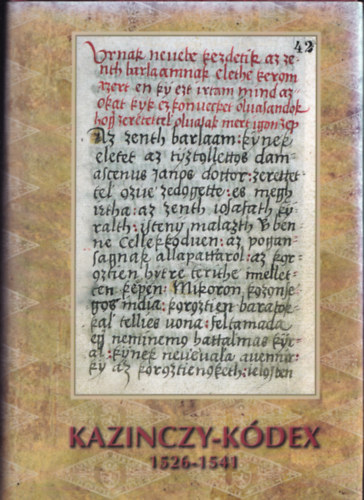 42
Vrnak neuebe kezdetik az ze-
nth barlaamnak elethe kerom
azert en ky ezt irtam mind az
okat kyk ez konyuechket oluasandok
hog zeretettel oluasak mert igon zep
Az zenth barlaam: kynek
eletet az tyztollettos dam-
ascenus ianos dottor: zerettet
tel ozue zedogette: es megh
irtha: az zenth iosafath ky
ralth: isteny malazth
ne Cellekkoduen: az pogan-
sagnak allapattarol: az kor-
oztien hytre terithe
ten kepen: Mikoron kozonse-
gos india: koroztien baratok-
kal tellies uona: feltamada
eg neminemo hattalmas kyr-
al: kynek neueuala auennir:
ky az koroztienoketh:
KAZINCZY-KÓDEX
1526-1541